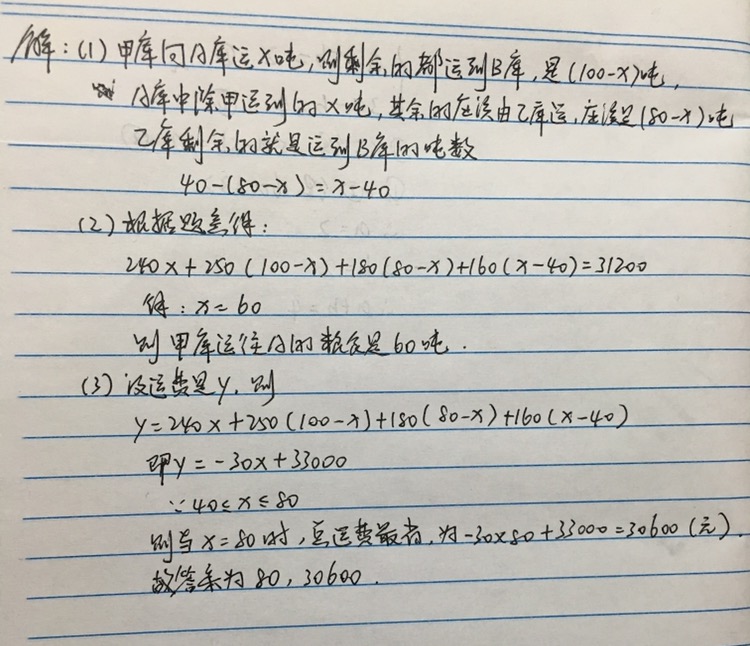 解：(1) 甲库向A库运x吨，则剩余的都运到B库，是(100-x)吨，
A库中除甲运到的x吨，其余的应该由乙库运，应该是(80-x)吨
乙库剩余的就是运到B库的吨数
40-(80-x)=x-40
(2) 根据题意得：
240x+250(100-x)+180(80-x)+160(x-40)=31200
解：x=60
则甲库运往A的粮食是60吨.
(3) 设运费是y，则
y=240x+250(100-x)+180(80-x)+160(x-40)
即y=-30x+33000
∵40≤x≤80
则当x=80时，总运费最省，为-30×80+33000=30600(元).
故答案为80，30600.